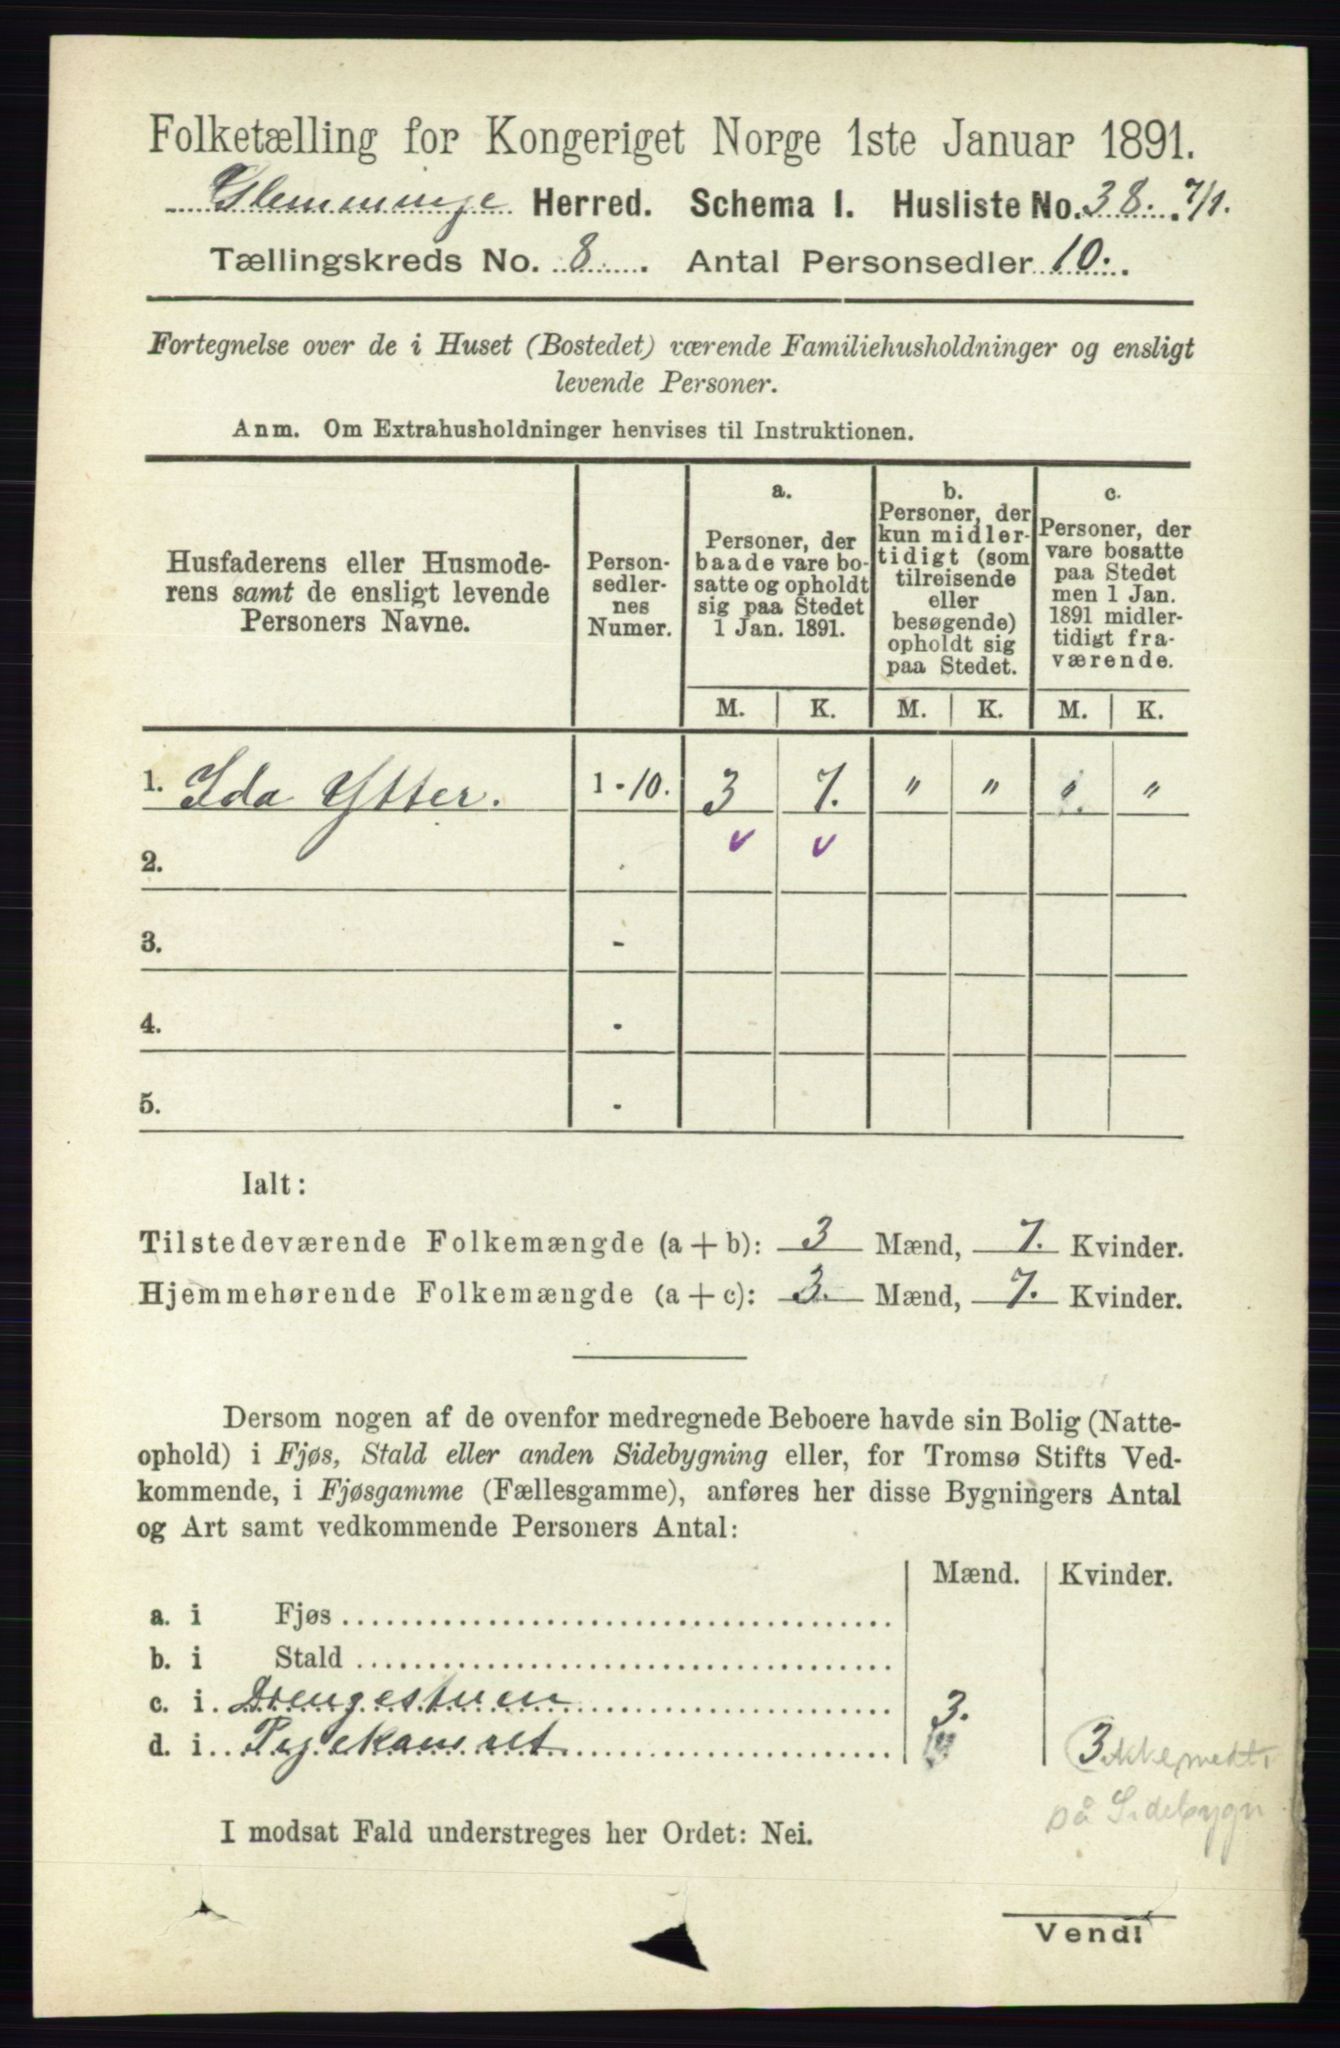 Folketælling for Kongeriget Norge 1ste Januar 1891.
Glemminge Herred. Schema I. Husliste No. 38. 7/1.
Tællingskreds No. 8. Antal Personsedler 10.
Fortegnelse over de i Huset (Bostedet) værende Familiehusholdninger og ensligt
levende Personer.
Anm. Om Extrahusholdninger henvises til Instruktionen.
Husfaderens eller Husmode-
rens samt de ensligt levende
Personers Navne.
Person-
sedler-
nes
Numer.
a.
Personer, der
baade vare bo-
satte og opholdt
sig paa Stedet
1 Jan. 1891.
b.
Personer, der
kun midler-
tidigt (som
tilreisende
eller
besøgende)
opholdt sig
paa Stedet.
c.
Personer, der
vare bosatte
paa Stedet
men 1 Jan.
1891 midler-
tidigt fra-
værende.
M. K. M. K. M. K.
1. Ida Ytter. 1-10. 3 7. " " " "
2.
3. -
4. -
5. -
Ialt:
Tilstedeværende Folkemængde (a + b): 3 Mænd, 7. Kvinder.
Hjemmehørende Folkemængde (a + c): 3. Mænd, 7. Kvinder.
Dersom nogen af de ovenfor medregnede Beboere havde sin Bolig (Natte-
ophold) i Fjøs, Stald eller anden Sidebygning eller, for Tromsø Stifts Ved-
kommende, i Fjøsgamme (Fællesgamme), anføres her disse Bygningers Antal
og Art samt vedkommende Personers Antal:
Mænd. Kvinder.
a. i Fjøs
b. i Stald
c. i Drengestuen 3.
d. i Pigekamret 3 Ikke medt.
på Sidebygn
I modsat Fald understreges her Ordet: Nei.
Vend!